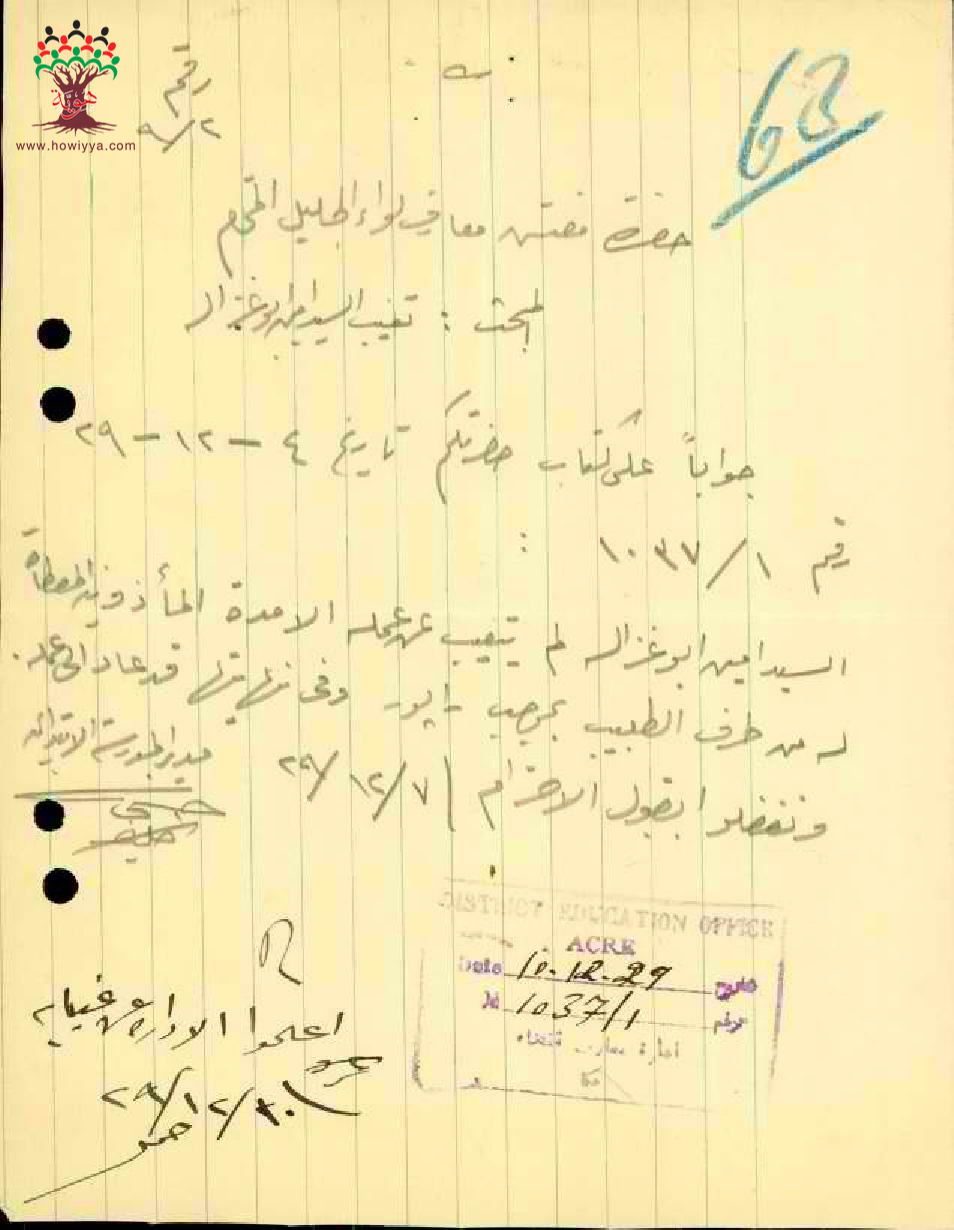 هوية
www.howiyya.com
رقم
٩/٢
63
حضرة مفتش معارف لواء الجليل المحترم
المبحث : تغيب السيد امين ابو غزاله
جواباً على كتاب حضرتكم تاريخ ٤ - ١٢ - ٢٩
رقم ١٠٣٧/١ :
السيد امين ابو غزاله لم يتغيب عن عمله الا مدة المأذونيه المعطاة
له من طرف الطبيب بموجب رابور وفي نهايتها قد عاد الى عمله .
وتفضلوا بقبول الاحترام ٢٩/١٢/٧
مدير المدرسة الابتدائيه
DISTRICT EDUCATION OFFICE
ACRE
Date 10.12.29 تاريخ
No 1037/1 نومرو
ادارة معارف قضاء
عكا
اعلموا الادارة عن غيابه
٢٩/١٢/١٠